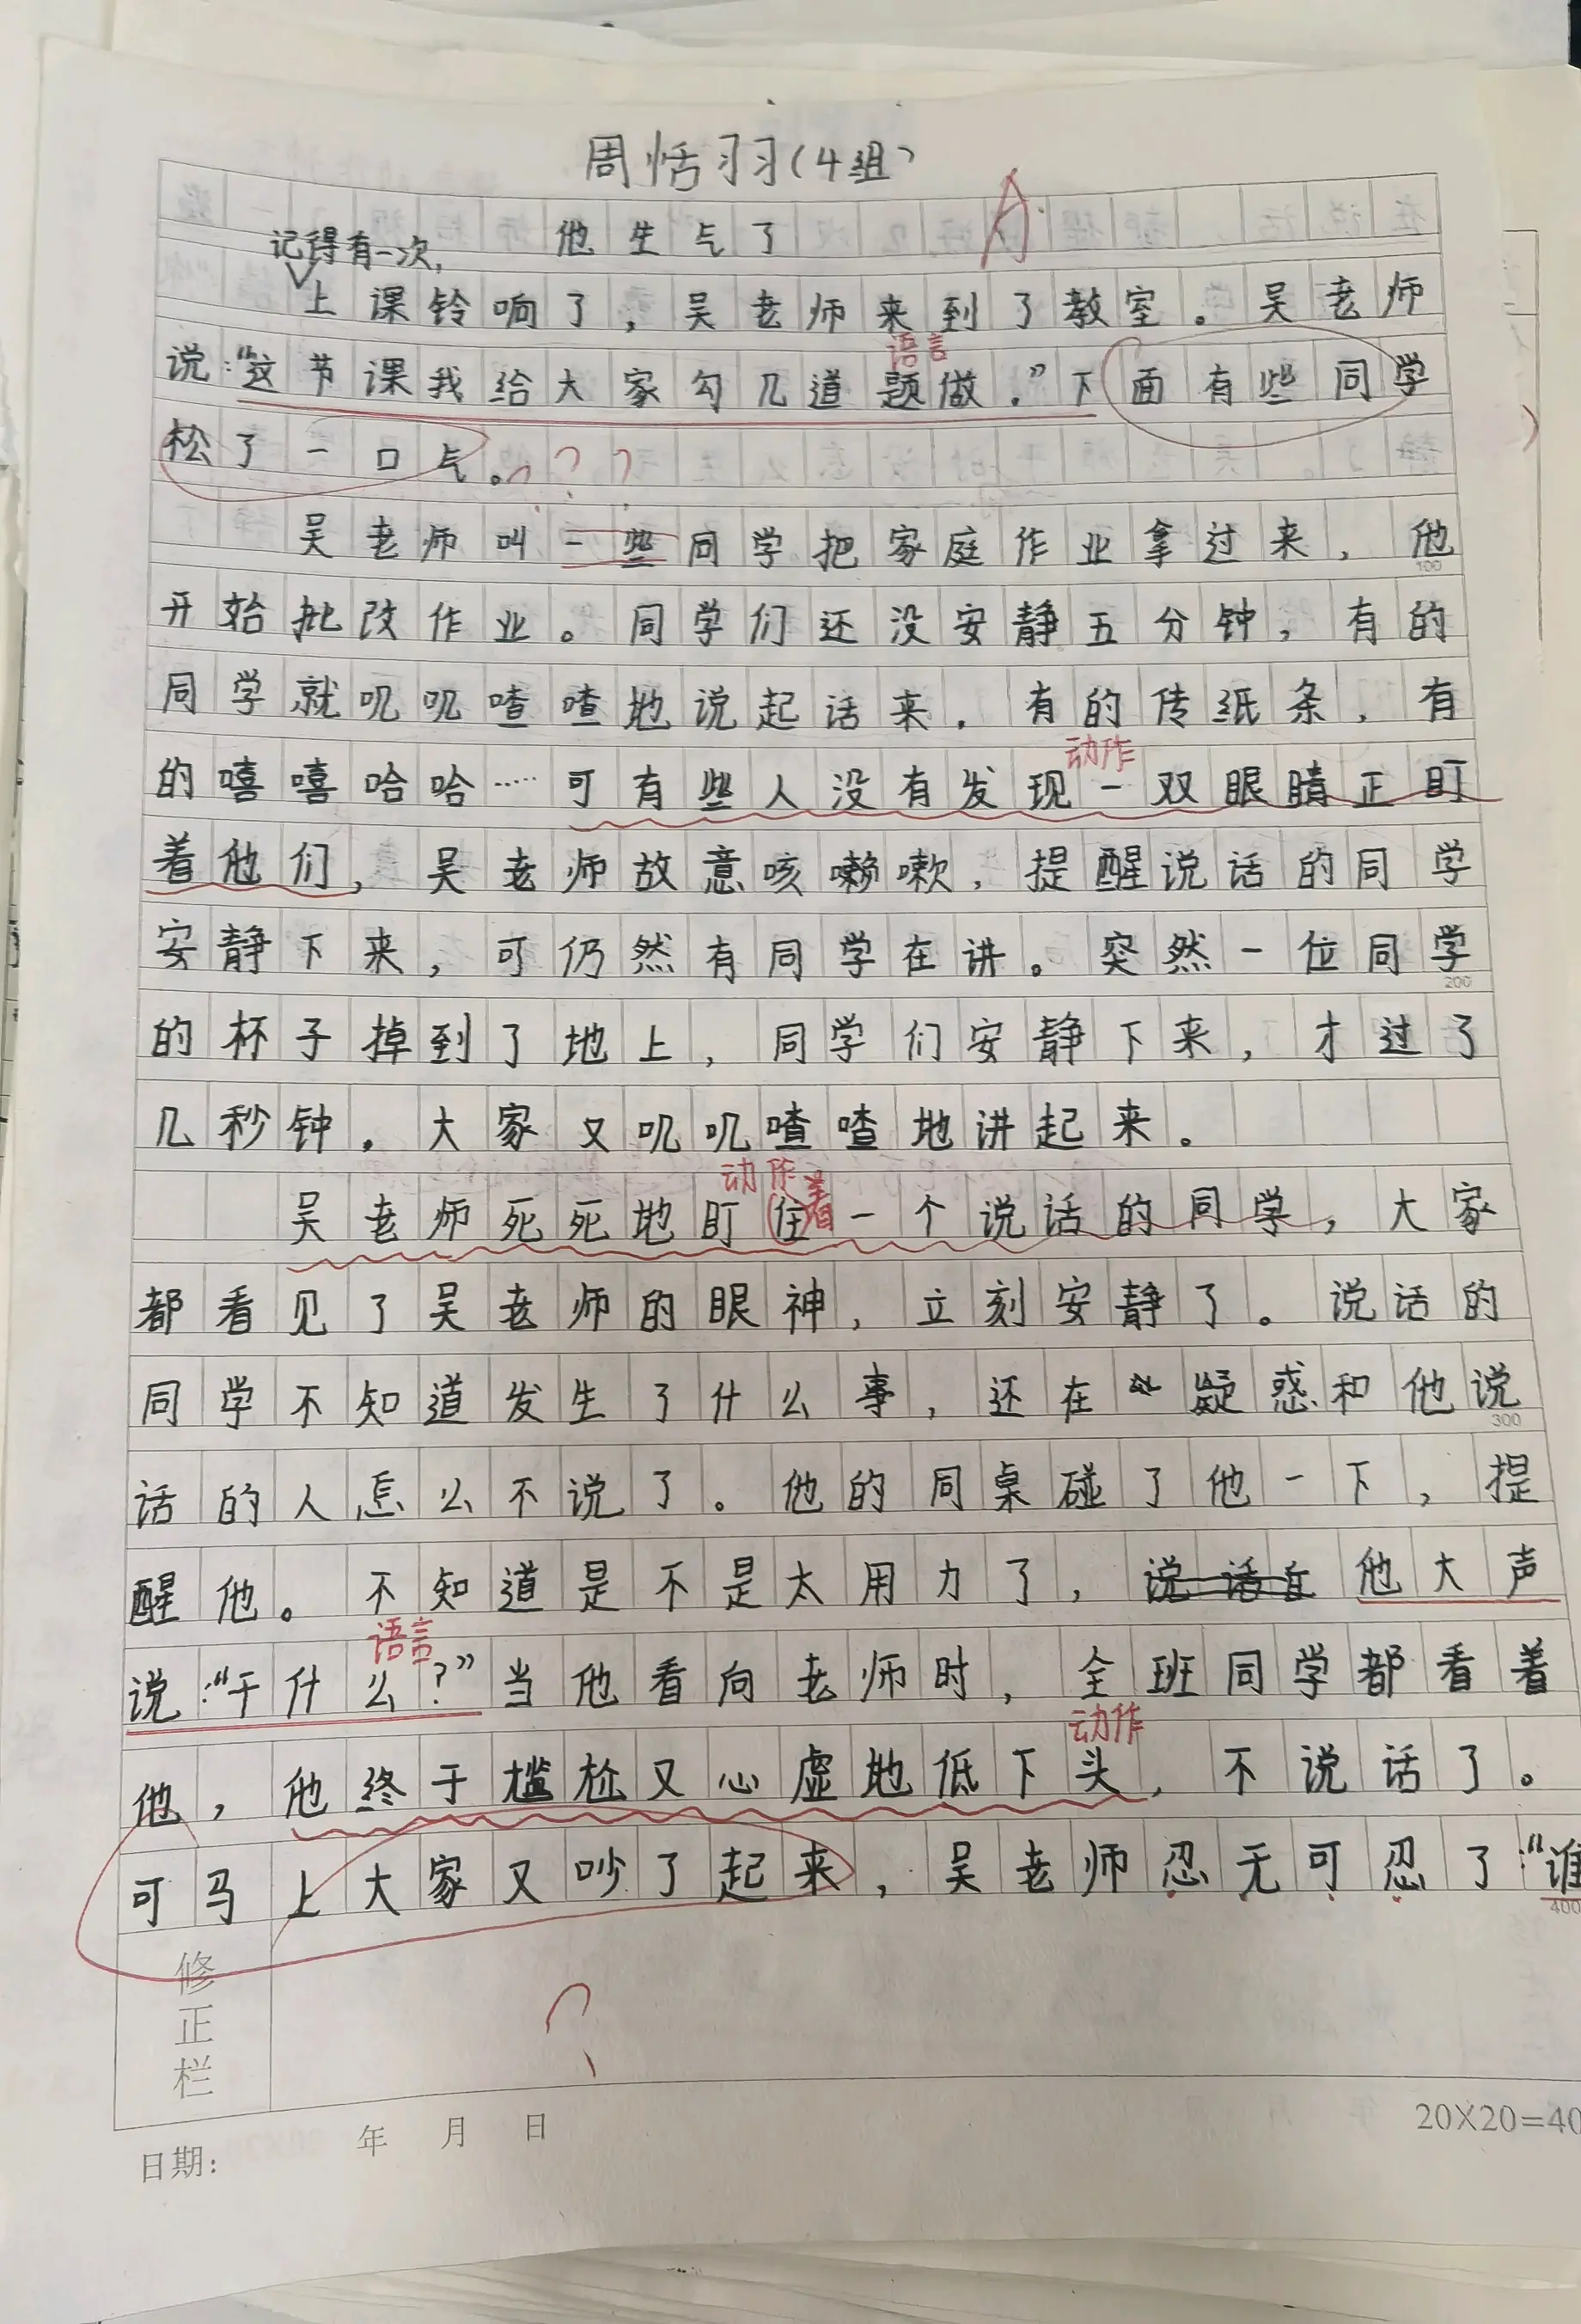 周恬羽(4组)
A
他生气了
记得有一次,
上课铃响了，吴老师来到了教室。吴老师
语言
说:“这节课我给大家勾几道题做.”下面有些同学
松了一口气。???
吴老师叫一些同学把家庭作业拿过来，他
100
开始批改作业。同学们还没安静五分钟，有的
同学就叽叽喳喳地说起话来，有的传纸条，有
动作
的嘻嘻哈哈……可有些人没有发现一双眼睛正盯
着他们，吴老师故意咳嗽嗽，提醒说话的同学
安静下来，可仍然有同学在讲。突然一位同学
200
的杯子掉到了地上，同学们安静下来，才过了
几秒钟，大家又叽叽喳喳地讲起来。
动作 着
吴老师死死地盯住一个说话的同学，大家
都看见了吴老师的眼神，立刻安静了。说话的
同学不知道发生了什么事，还在疑惑和他说
300
话的人怎么不说了。他的同桌碰了他一下，提
醒他。不知道是不是太用力了，说话 他大声
语言
说:“干什么?”当他看向老师时，全班同学都看着
动作
他，他终于尴尬又心虚地低下头，不说话了。
可马上大家又吵了起来，吴老师忍无可忍了:“谁
400
修正栏
?
日期: 年 月 日
20X20=40